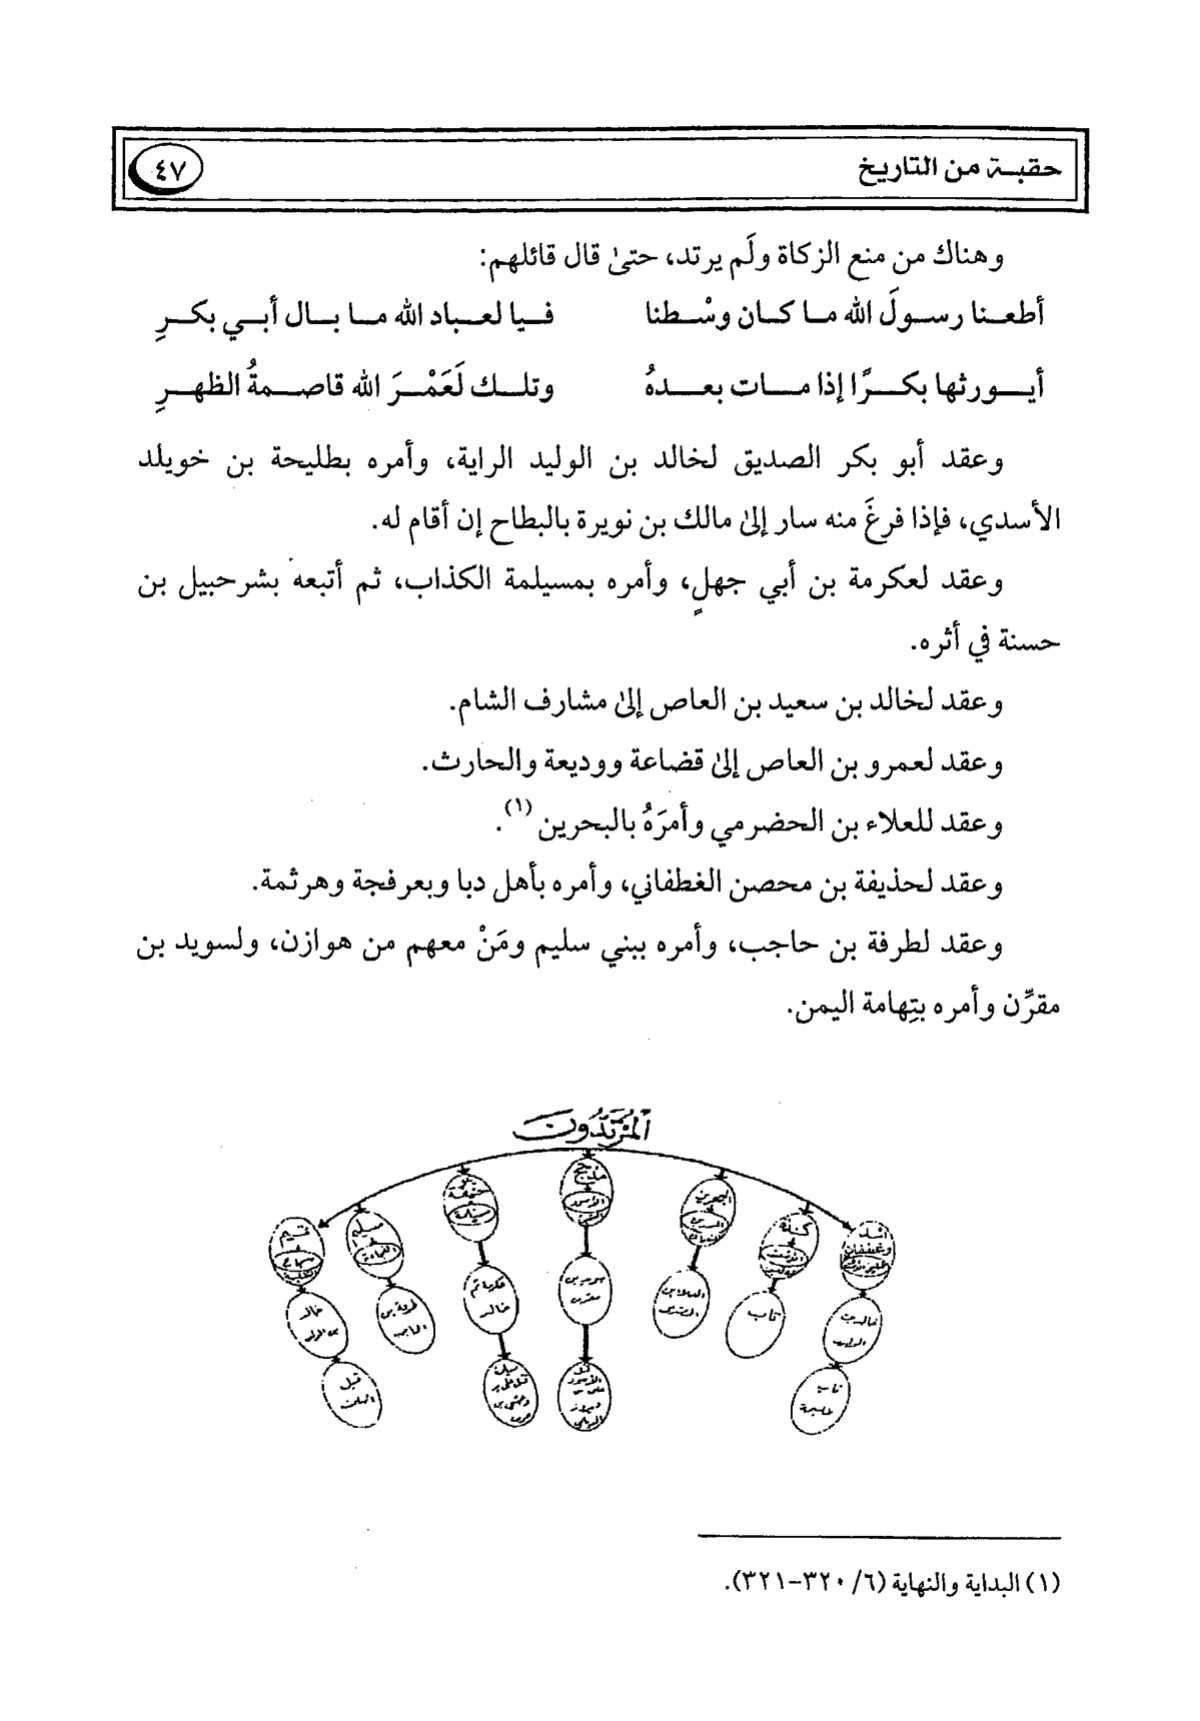 حقبة من التاريخ
٤٧
وهناك من منع الزكاة ولَم يرتد، حتىٰ قال قائلهم:
أطعنا رسولَ الله ما كان وسْطنا فيا لعباد الله ما بال أبي بكرِ
أيورثها بكرًا إذا مات بعدهُ وتلك لَعَمْرَ الله قاصمةُ الظهرِ
وعقد أبو بكر الصديق لخالد بن الوليد الراية، وأمره بطليحة بن خويلد
الأسدي، فإذا فرغَ منه سار إلىٰ مالك بن نويرة بالبطاح إن أقام له.
وعقد لعكرمة بن أبي جهلٍ، وأمره بمسيلمة الكذاب، ثم أتبعه بشرحبيل بن
حسنة في أثره.
وعقد لخالد بن سعيد بن العاص إلىٰ مشارف الشام.
وعقد لعمرو بن العاص إلىٰ قضاعة ووديعة والحارث.
وعقد للعلاء بن الحضرمي وأمرَهُ بالبحرين (١).
وعقد لحذيفة بن محصن الغطفاني، وأمره بأهل دبا وبعرفجة وهرثمة.
وعقد لطرفة بن حاجب، وأمره ببني سليم ومَنْ معهم من هوازن، ولسويد بن
مقرِّن وأمره بتِهامة اليمن.
المُرْتَدُّونَ
أسد
وغطفان
كندة
البحرين
مذحج
حنيفة
سليم
تميم
خالد بن
الوليد
تاب
عكرمة ثم
خالد
طريفة بن
خالد
بن الوليد
تاب
طليحة
(١) البداية والنهاية (٦/ ٣٢٠-٣٢١).